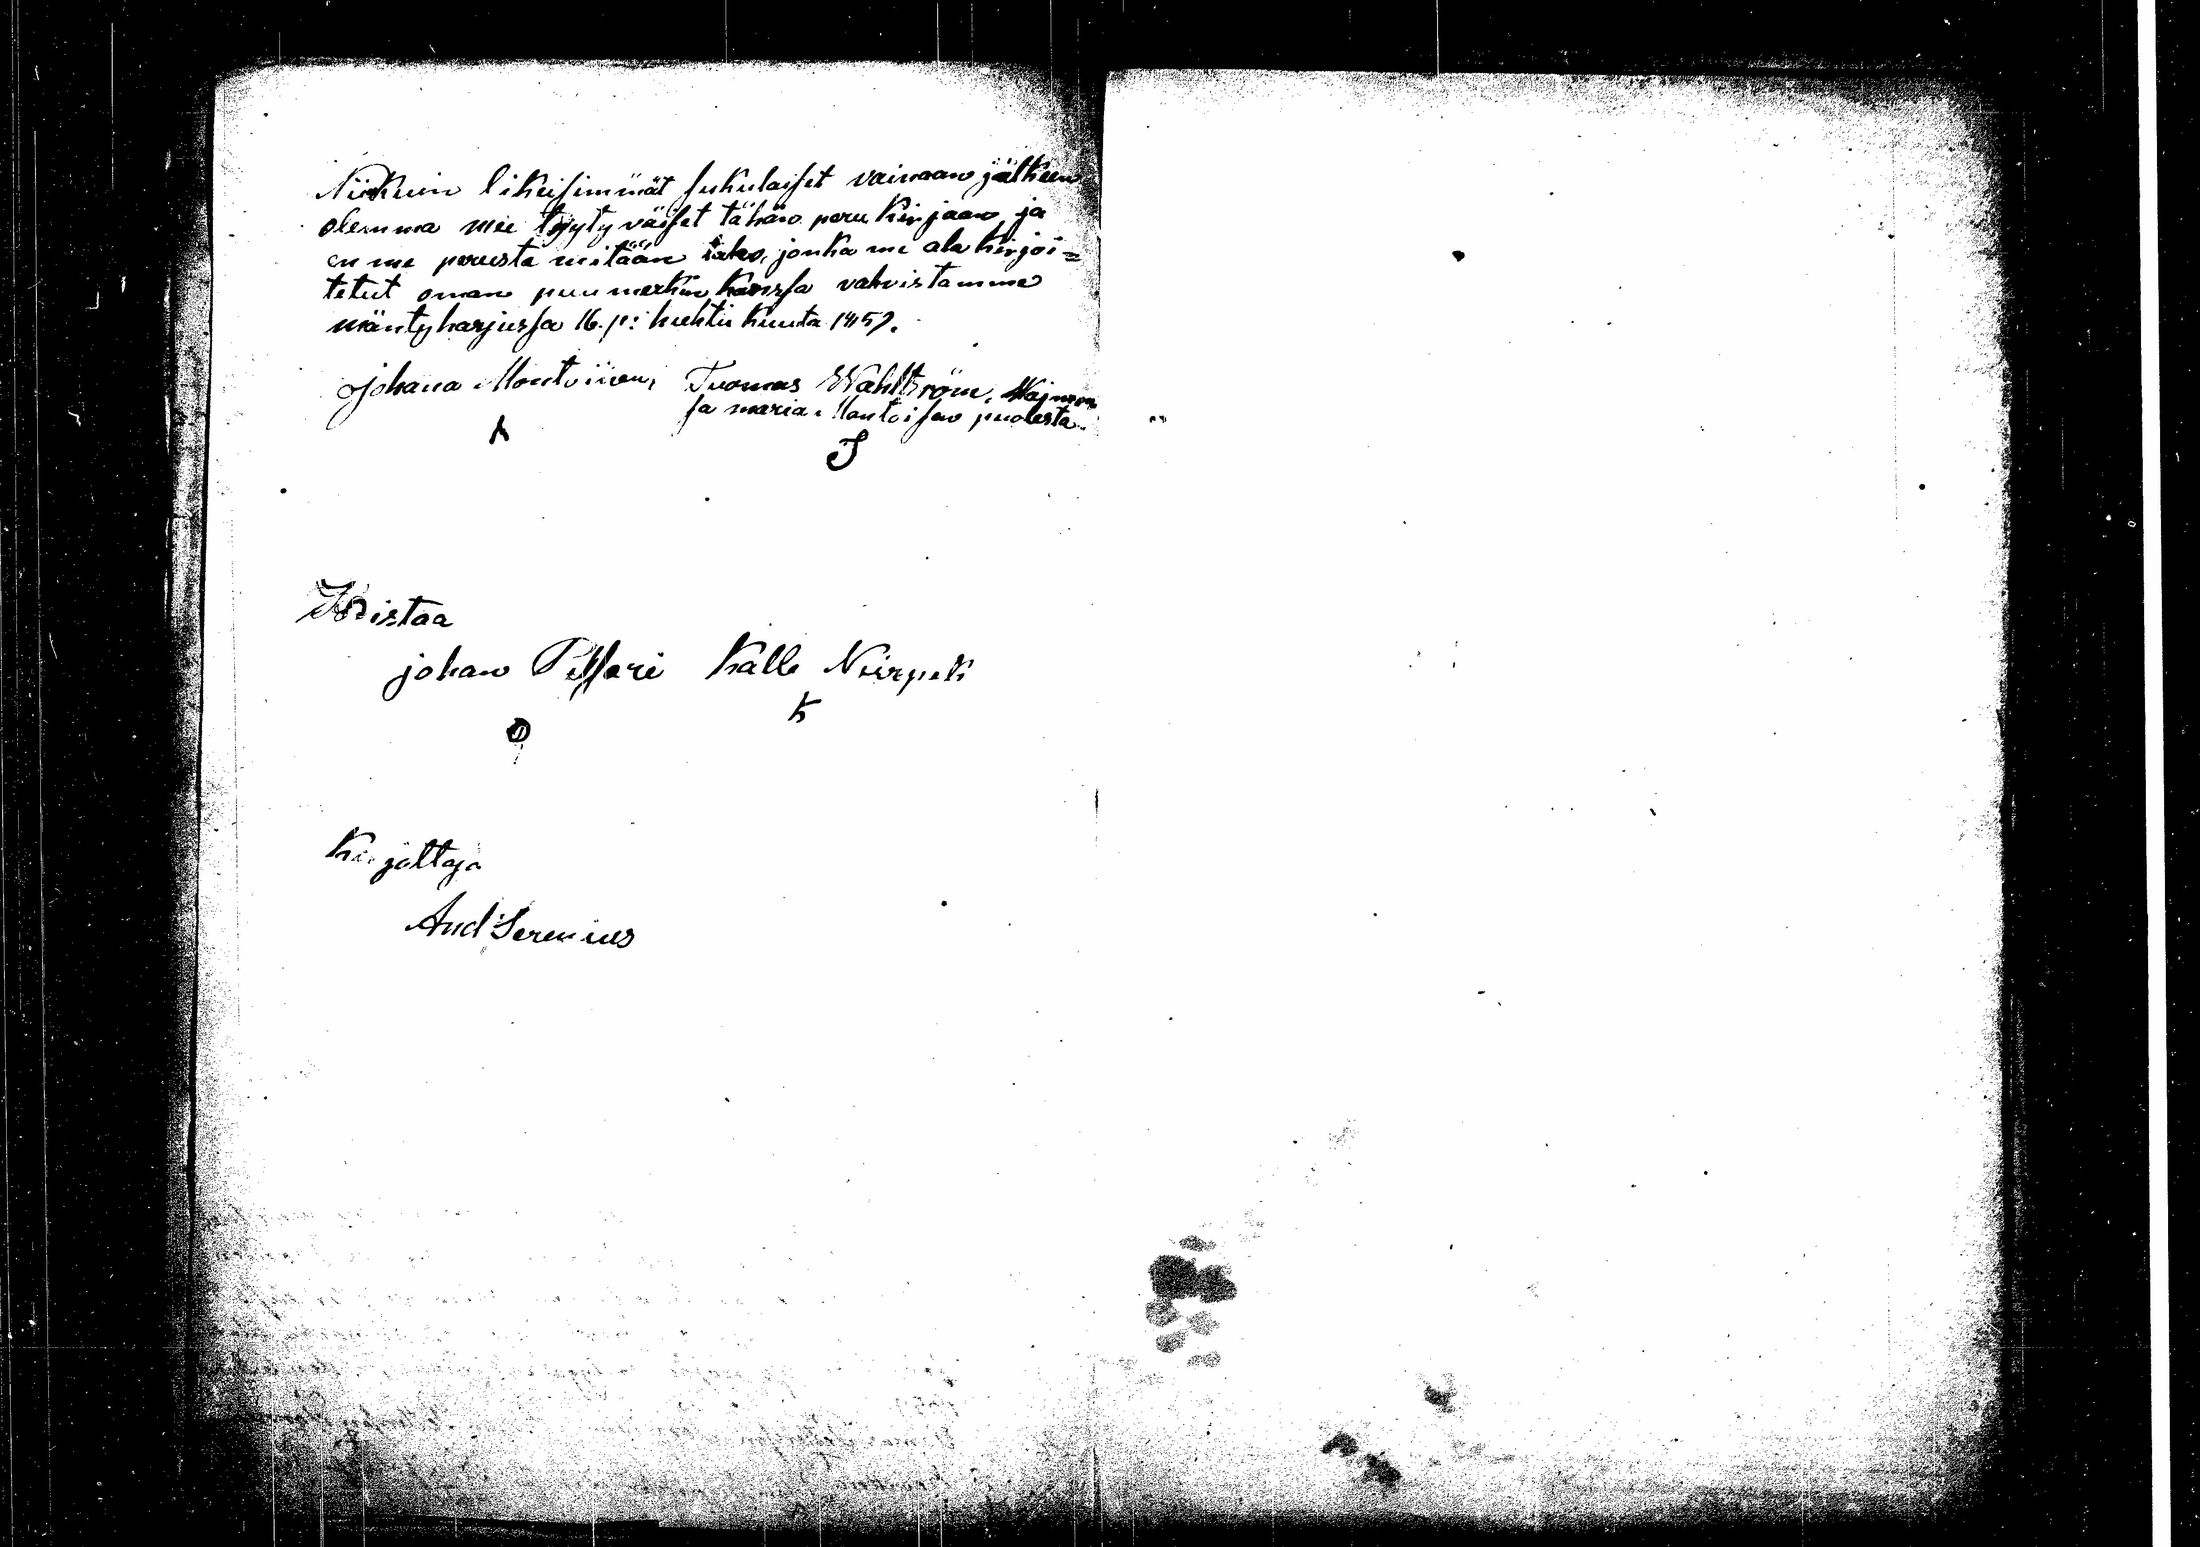 Niinkuin likeisimmät sukulaiset vainaan jälkeen
olemma mee tyytyväiset tähän peru kirjaan ja
en me perusta mitään jonka me ala kirjoi=
tetut oman puumerkin kanssa vahvistamme
mäntyharjussa 16. p: huhti kuuta 1857.
Johana Montoinen, Tuomas Wahlström,
ja maria Montoisen puolesta.
S
Todistaa
johan Pessari Kalle Nirpek
K
Kirjoittaja
And Serenius